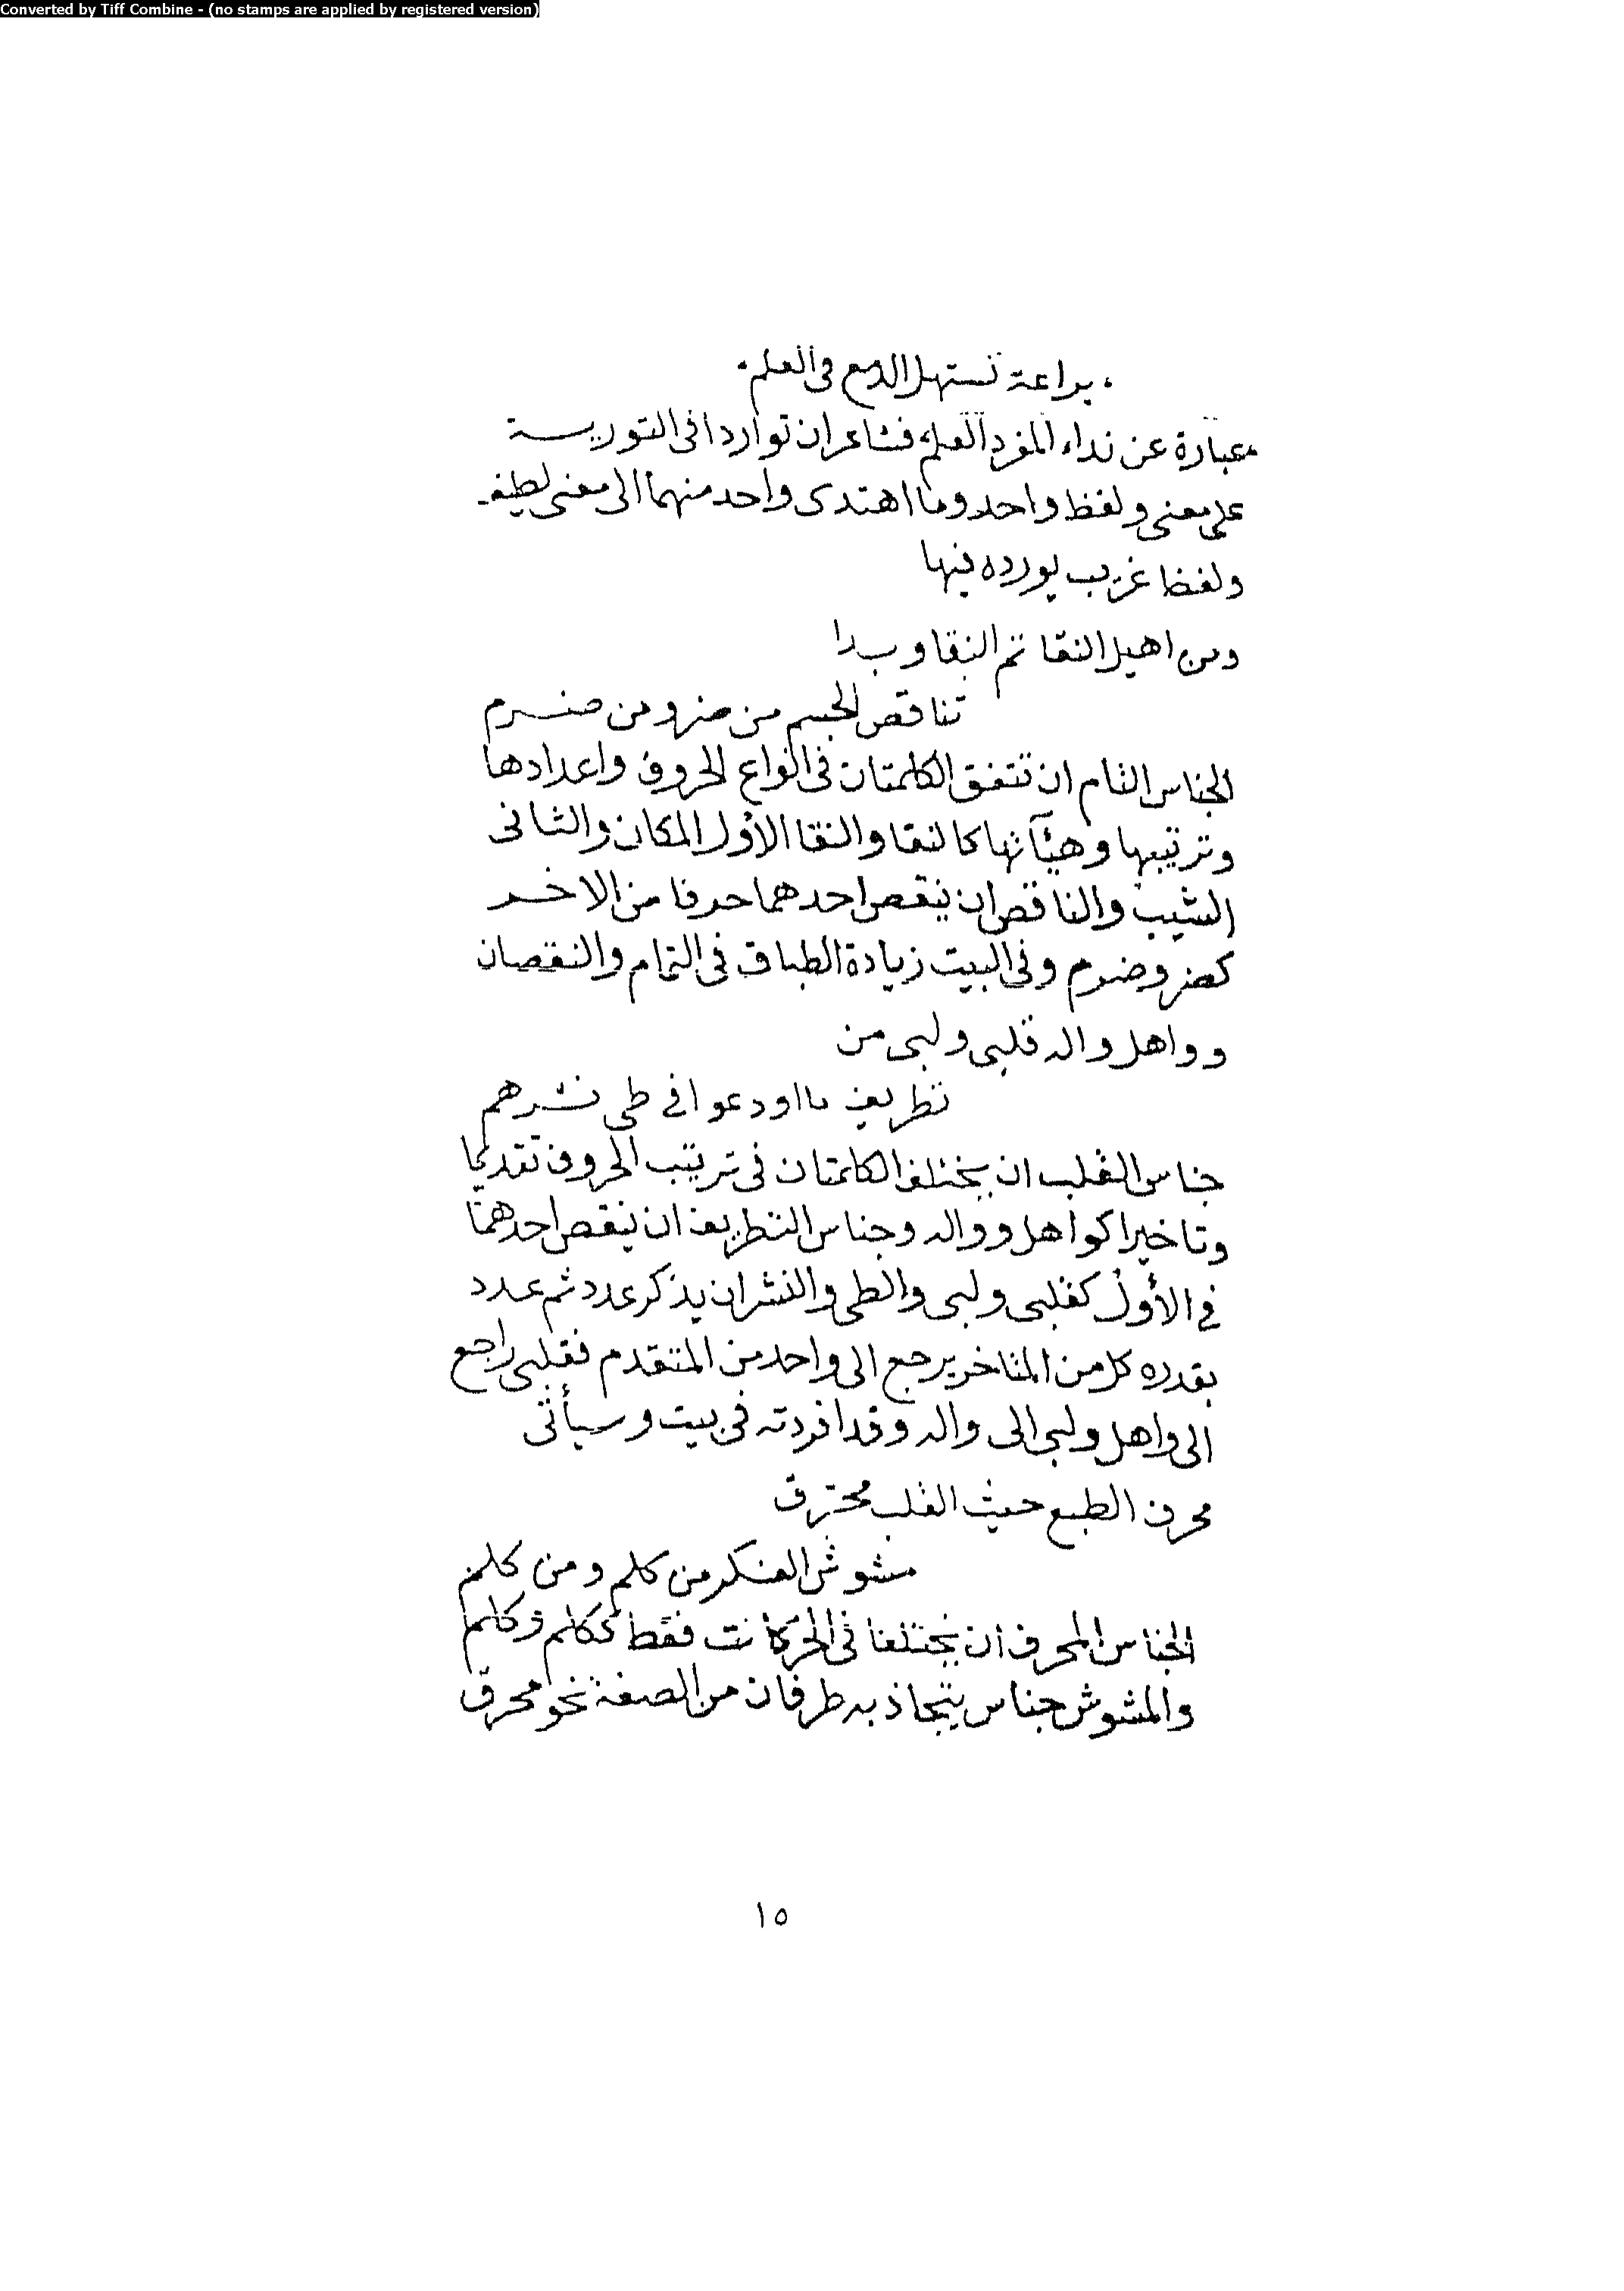 Converted by Tiff Combine - (no stamps are applied by registered version)
، براعة تستهل الدمع فى العلم ،
عبارة عن نداء المفرد العلم فشاعران تواردا فى التورية
على معنى ولفظ واحد وما اهتدى واحد منهما الى معنى لطيف
ولفظ غريب يورده فيها
ومن اهيل النقا تم النقا وبدا
تناقص الجسم من ضر ومن ضرم
الجناس التام ان تتفق الكلمتان فى انواع الحروف واعدادها
وترتيبها وهيآتها كالنقا والنقا الأول المكان والثانى
الشيب والناقص ان ينقص احدهما حرفا من الاخر
كضر وضرم وفى البيت زيادة الطباق فى التمام والنقصان
وواهل واله قلبى ولبى من
تظريف ما اودعوا فى طى نشرهم
جناس القلب ان يختلف الكلمتان فى ترتيب الحروف تقديما
وتاخيرا كواهل وواله وجناس التظريف ان ينقص احدهما
فى الأول كقلبى ولبى والطى والنشر ان يذكر عدد ثم عدد
بقدره كل من المتاخر يرجع الى واحد من المتقدم فقلبى راجع
الى واهل ولبى الى واله وقد افردته فى بيت وسيأتى
محرف الطبع حيث القلب محترق
مشوش الفكر من كلم ومن كلم
الجناس المحرف ان يختلفا فى الحركات فقط ككلم وكلم
والمشوش جناس يتجاذبه طرفان من الصفة نحو محرق
١٥